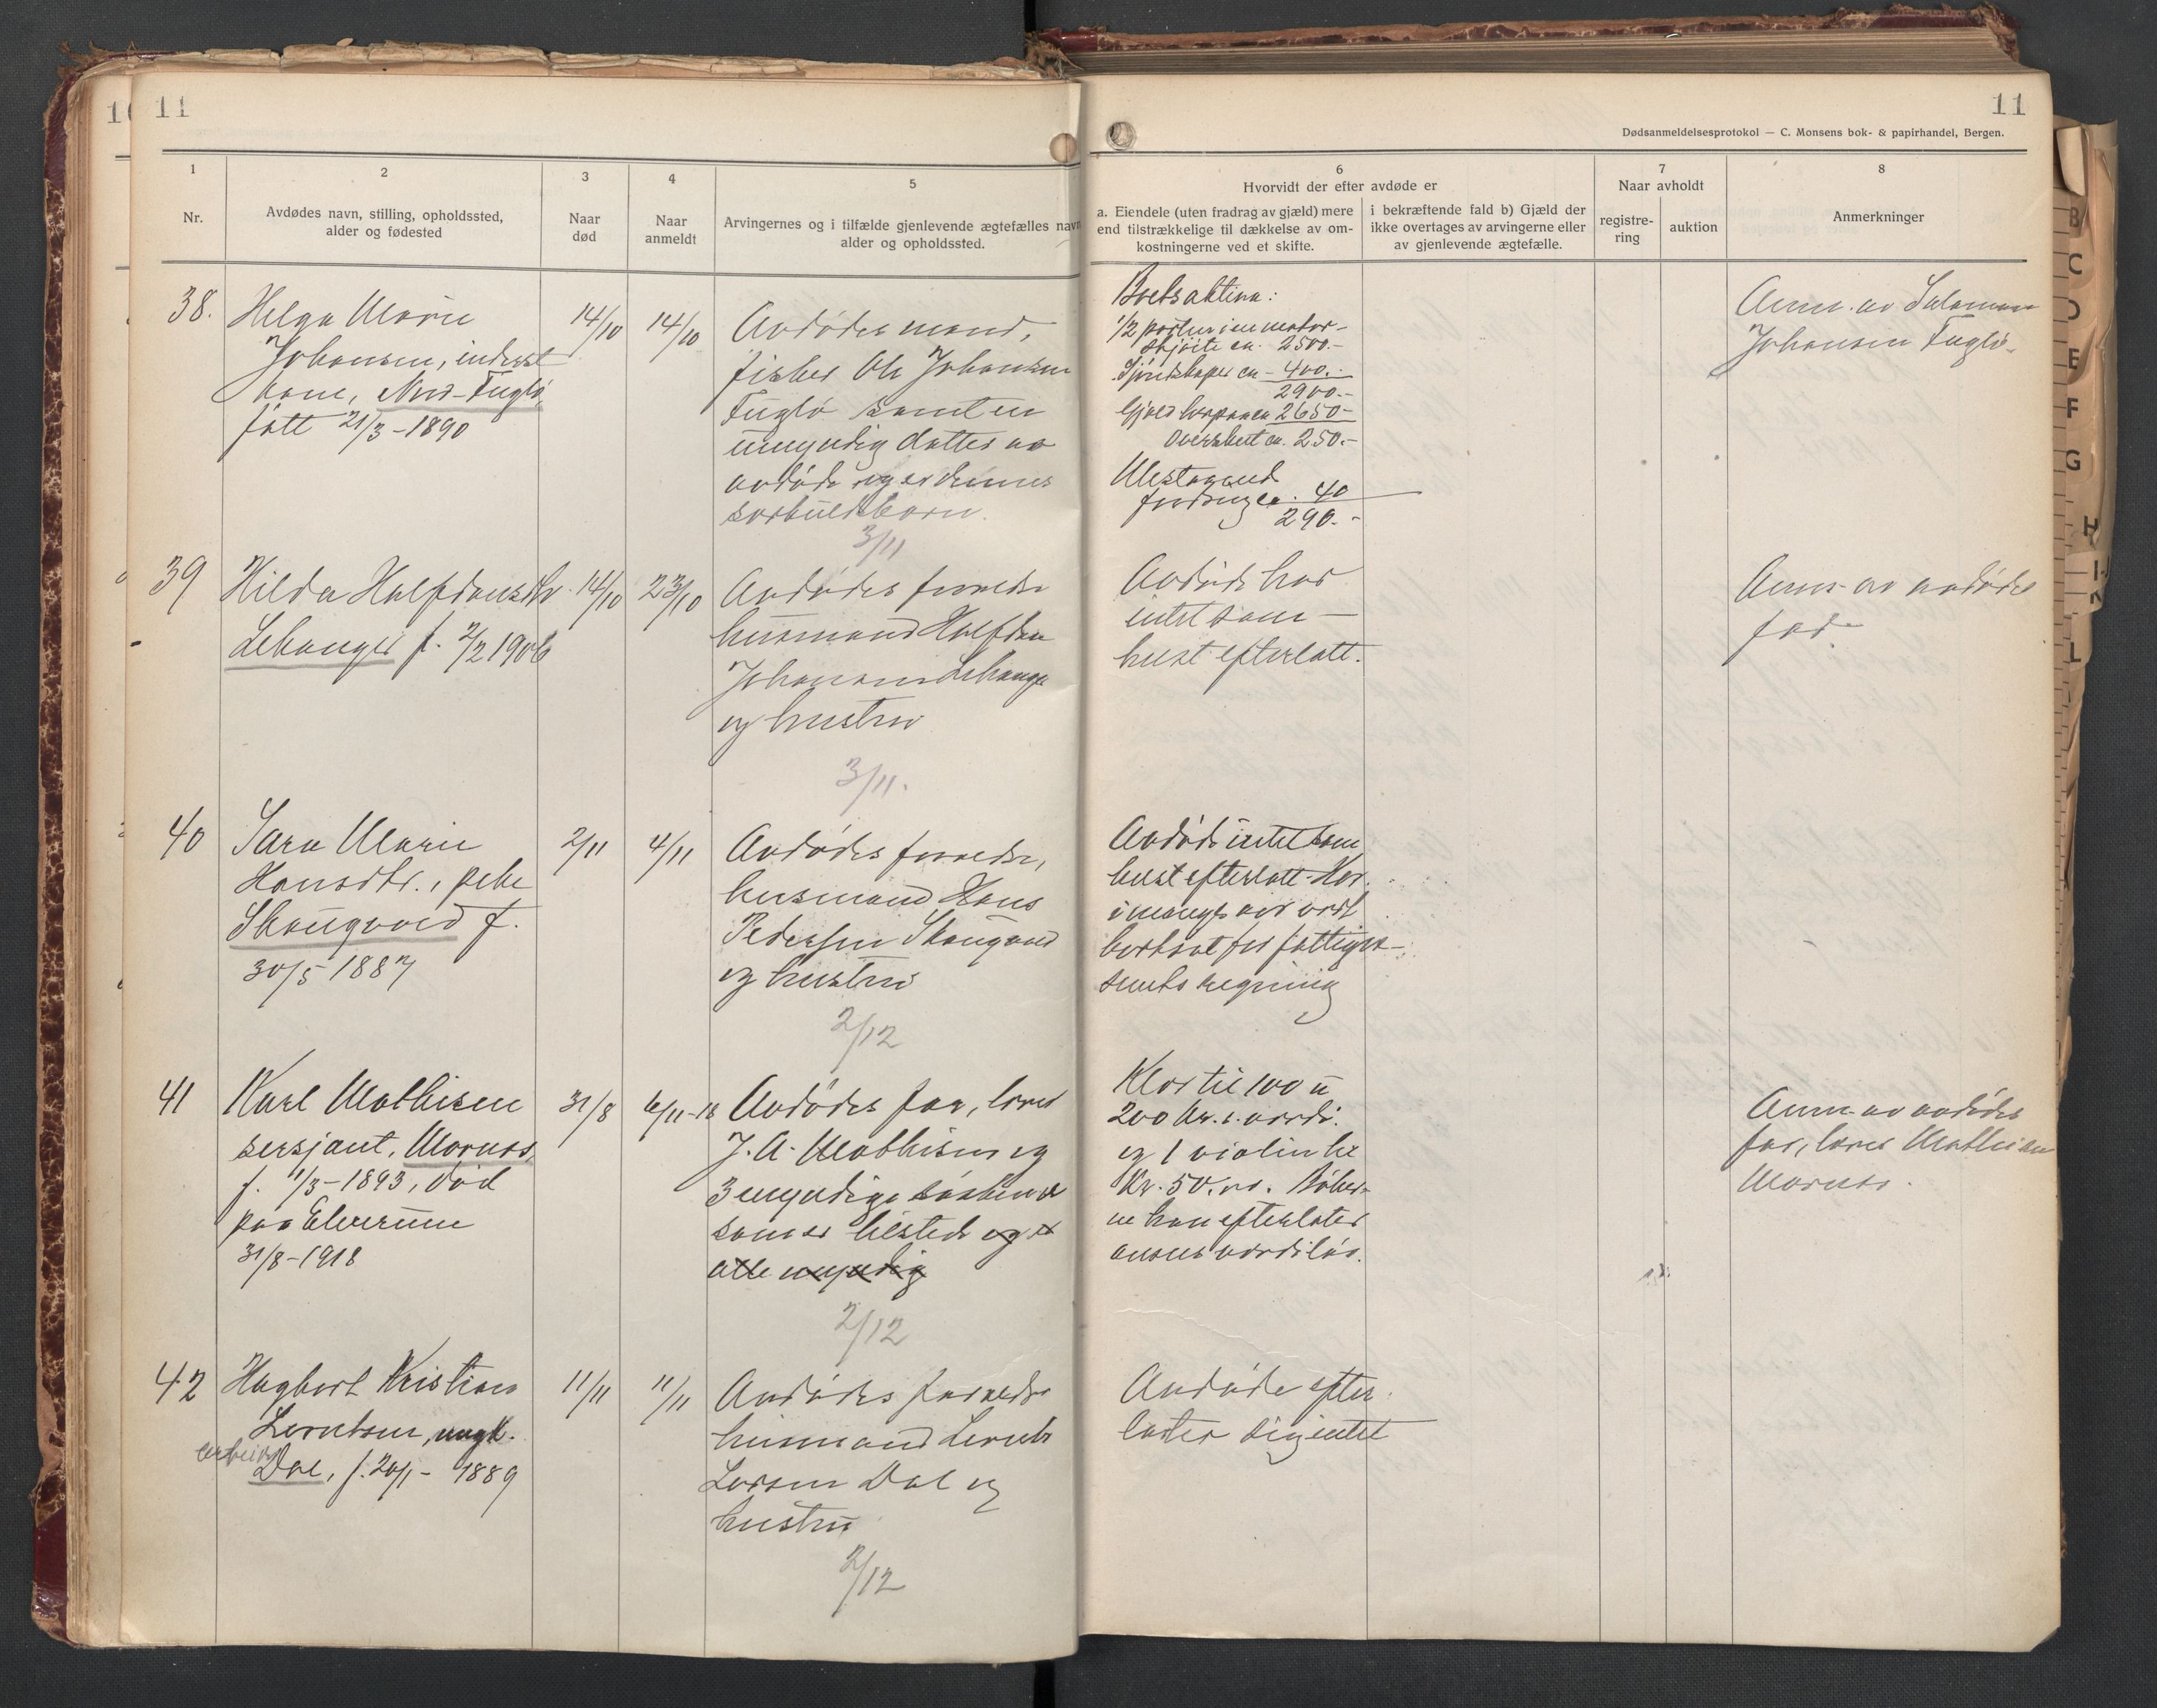 11
11
Dødsanmeldelsesprotokol — C. Monsens bok- & papirhandel, Bergen.
1
Nr.
2
Avdødes navn, stilling, opholdssted,
alder og fødested
3
Naar
død
4
Naar
anmeldt
5
Arvingernes og i tilfælde gjenlevende ægtefælles navn
alder og opholdssted.
6
Hvorvidt der efter avdøde er
a. Eiendele (uten fradrag av gjæld) mere
end tilstrækkelige til dækkelse av om-
kostningerne ved et skifte.
i bekræftende fald b) Gjæld der
ikke overtages av arvingerne eller
av gjenlevende ægtefælle.
7
Naar avholdt
registre-
ring
auktion
8
Anmerkninger
38.
Helga Marie
Johansen, inderst
kone, Nord-Fuglø,
født 21/3-1890
14/10
14/10
Avdødes mand,
fisker Ole Johansen
Fuglø samt en
umyndig datter av
avdøde og er hennes
særkuldsbarn.
3/11
Boets aktiva:
1/2 part i en motor-
skjøite ca. 2500.-
Sjøredskaper ca - 400.-
2900.-
Gjæld herpaa ca 2650-
Overskudt ca. 250.-
Utestaaende
fordring ca. 40
290.-
Anm. av Salamon
Johansen Fuglø.
39
Hilda Halfdansdtr
Lekanger f. 2/2 1906
14/10
23/10
Avdødes forældre
husmand Halfdan
Johansen Lekanger
og hustru
3/11.
Avdøde har
intet som-
helst efterlatt.
Anm. av avdødes
far.
40
Sara Marie
Hansdtr., pike
Skaugvold f.
30/5 1887
2/11
4/11
Avdødes forældre,
husmand Hans
Pedersen Skaugvold
og hustru
2/12
Avdøde intet som
helst efterlatt. Har
i mange aar vært
bortsat for fattigvæ-
senets regning
41
Karl Mathisen
sersjant, Moruss,
f. 11/3-1893, død
paa Elverum
31/8-1918
31/8
6/11-18
Avdødes far, lærer
J. A. Mathisen og
3 myndige søsken
som er tilstede og er
alle myndig
2/12
Klær til 100 a
200 kr. i værdi.
og 1 violin til
Kr. 50.00. Bøker-
ne han efterlater
ansees værdiløs.
Anm. av avdødes
far, lærer Mathisen
Moruss.
42
Hagbart Kristian
Lorntsen, ungk.
arbeider
Dal, f. 20/1- 1889
11/11
11/11
Avdødes forældre
husmand Lornts
Larsen Dal og
hustru
2/12
Avdøde efter-
later sig intet
B
C
D
E
F
G
H
L